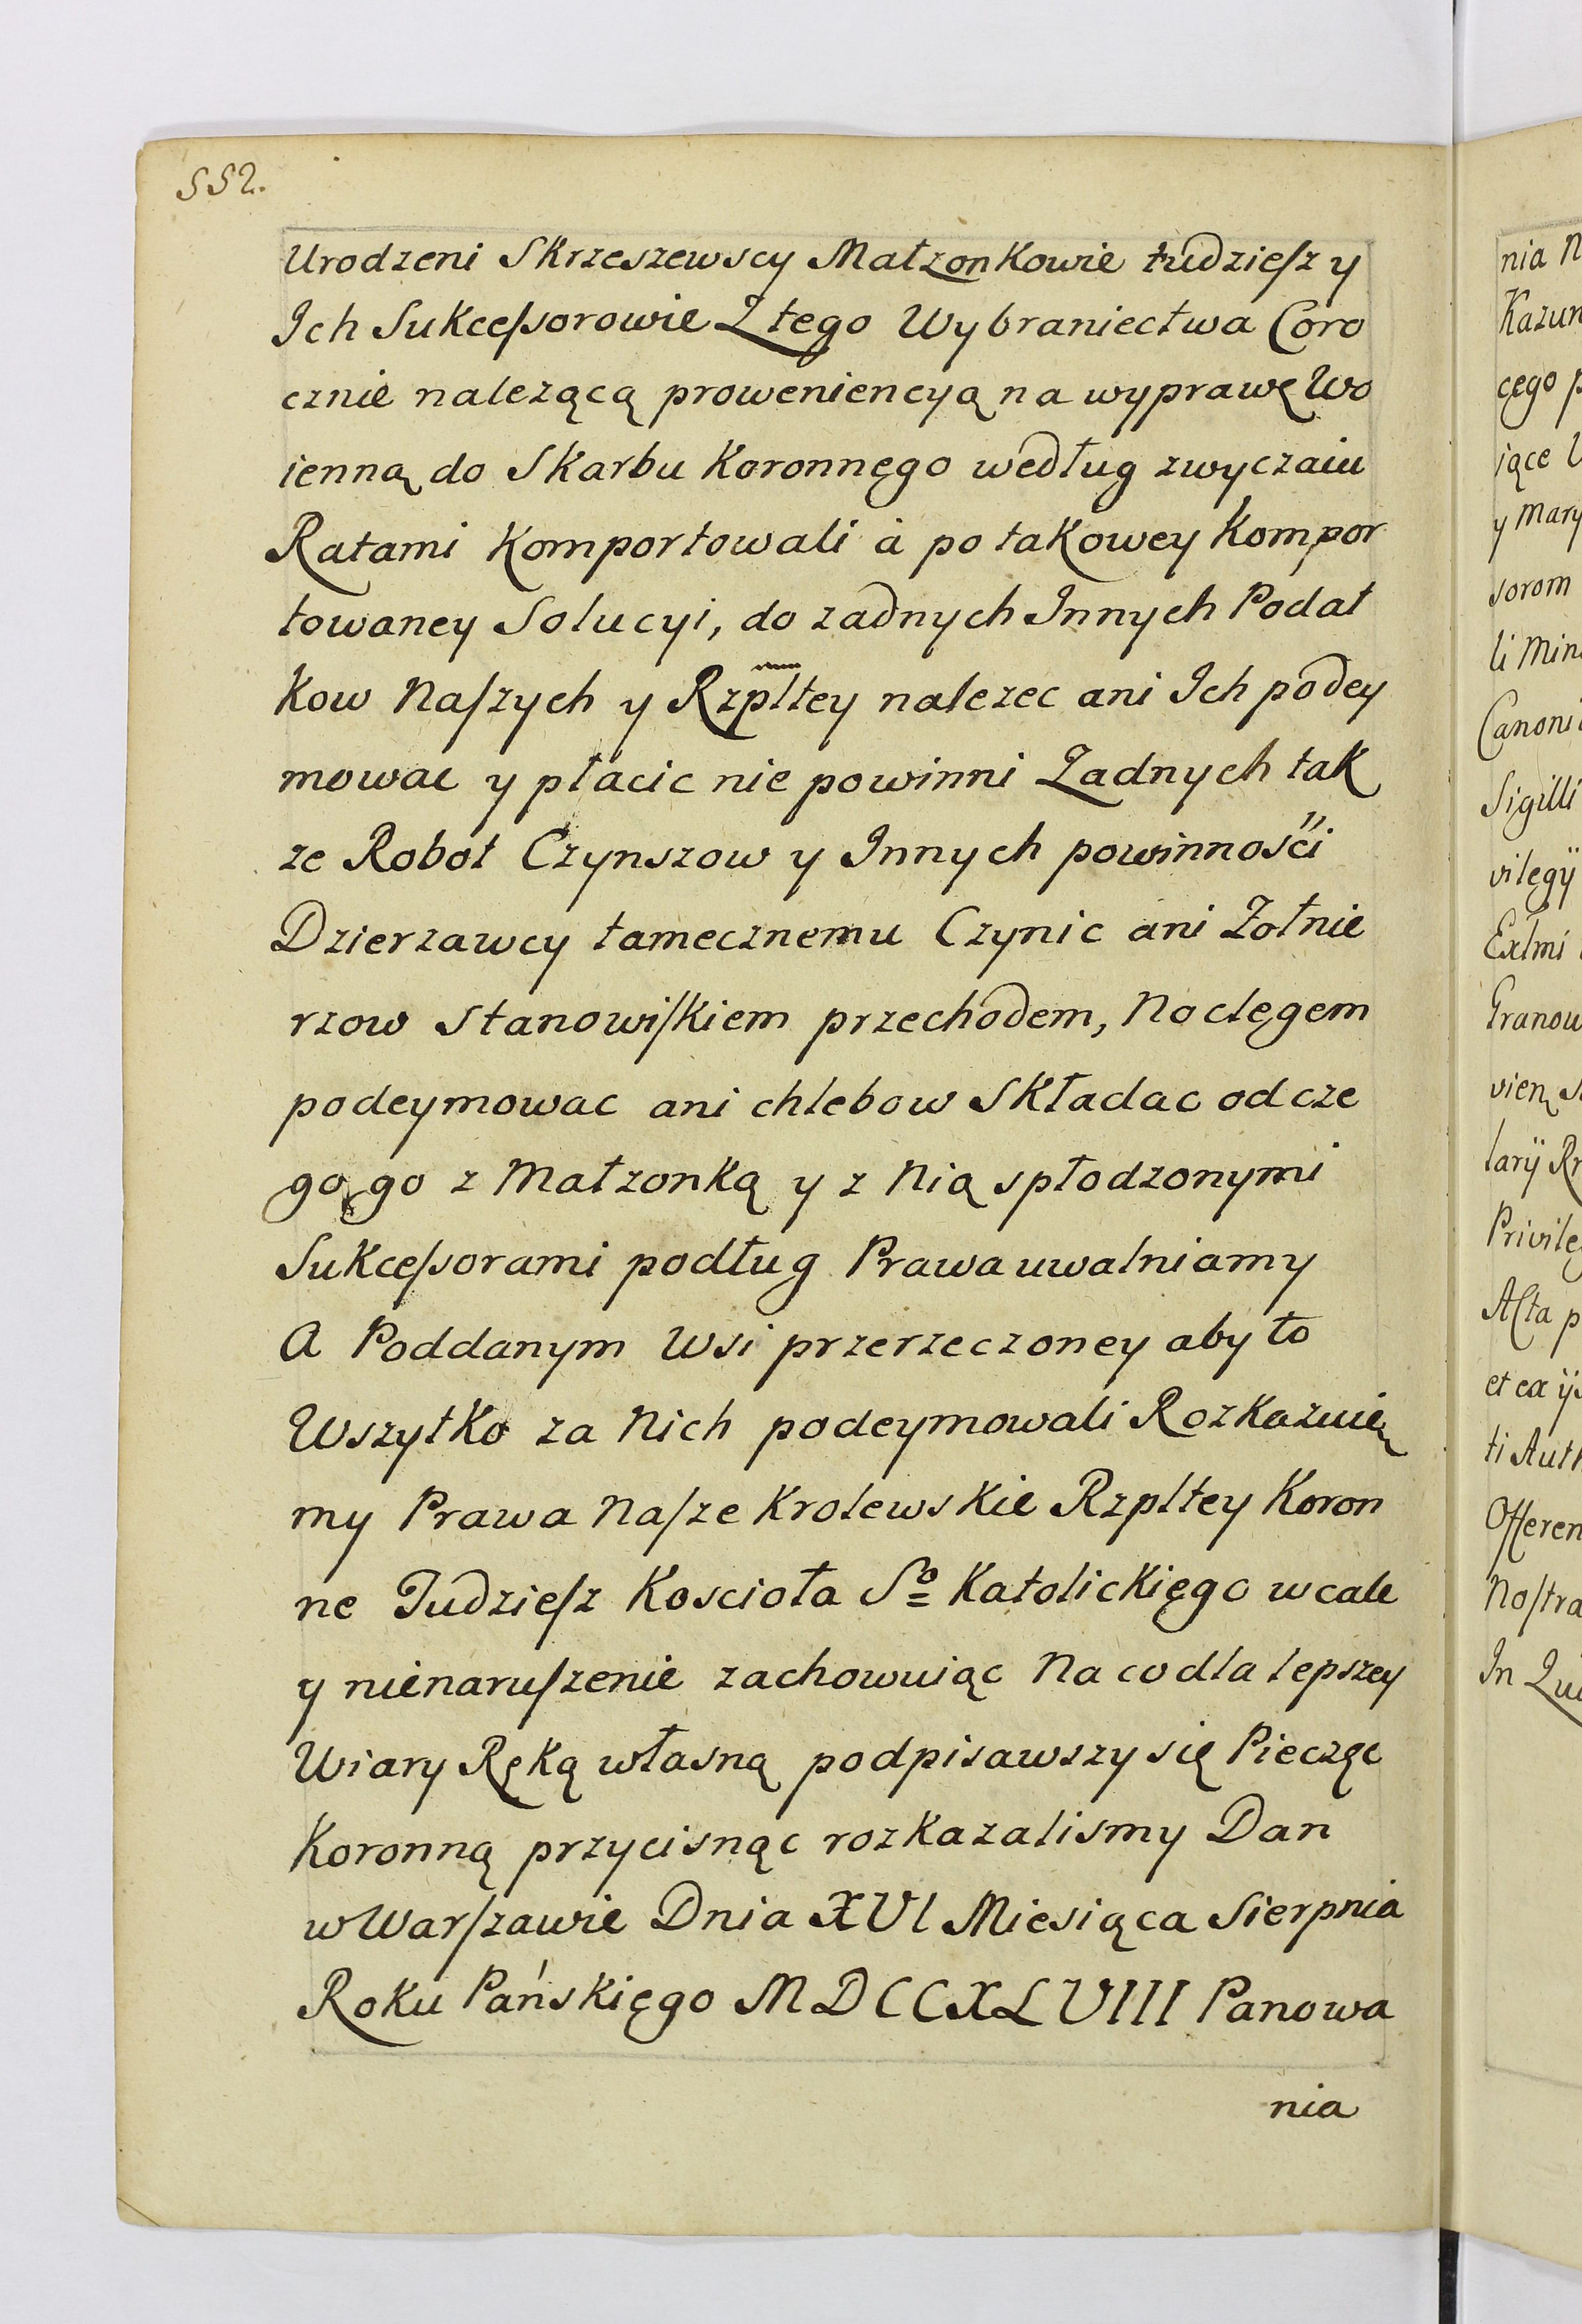 552.
Urodzeni Skrzeszewscy Małzonkowie tudzieſz y
Ich Sukceſsorowie Z tego Wybraniectwa Coro
cznie nalezącą proweniencyą na wyprawę Wo
ienną do Skarbu Koronnęgo według zwyczaiu
Ratami Komportowali á po takowey Kompor
towaney Solucyi, do zadnych Innych Podat
kow Naſzych y Rzpltey nalezec ani Ich podey
mowac y płacic nie powinni Zadnych tak
ze Robot Czynszow y Innych powinnośći
Dzierzawcy tamecznemu Czynic ani Zołnie
rzow Stanowiſkiem przechodem, Noclęgem
podeymowac ani chlebow Składac od cze
go go z Małzonką y z Nią spłodzonymi
Sukceſsorami podług Prawa uwalniamy
A Poddanym Wsi przerzeczoney aby to
Wszytko za Nich podeymowali Rozkazuię
my Prawa Naſze Krolewskie Rzpltey Koron
ne Tudzieſz Koscioła Sº Katolickięgo wcale
y nienaruſzenie zachowuiąc Na co dla lepszey
Wiary Ręką własną podpisawszy się Pieczęc
Koronną przycisnąc rozkazalismy Dan
w Warſzawie Dnia XVI Miesiąca Sierpnia
Roku Pańskięgo MDCCXLVIII Panowa
nia
nia N
Kazun
cęgo p
iące U
y Mary
sorom
li Min
Canoni
Sigilli
vilegÿ
Exlmi
Granow
vien
larÿ
Privileg
Acta p
et ex ÿs
ti Auth
Offeren
Noſtra
In